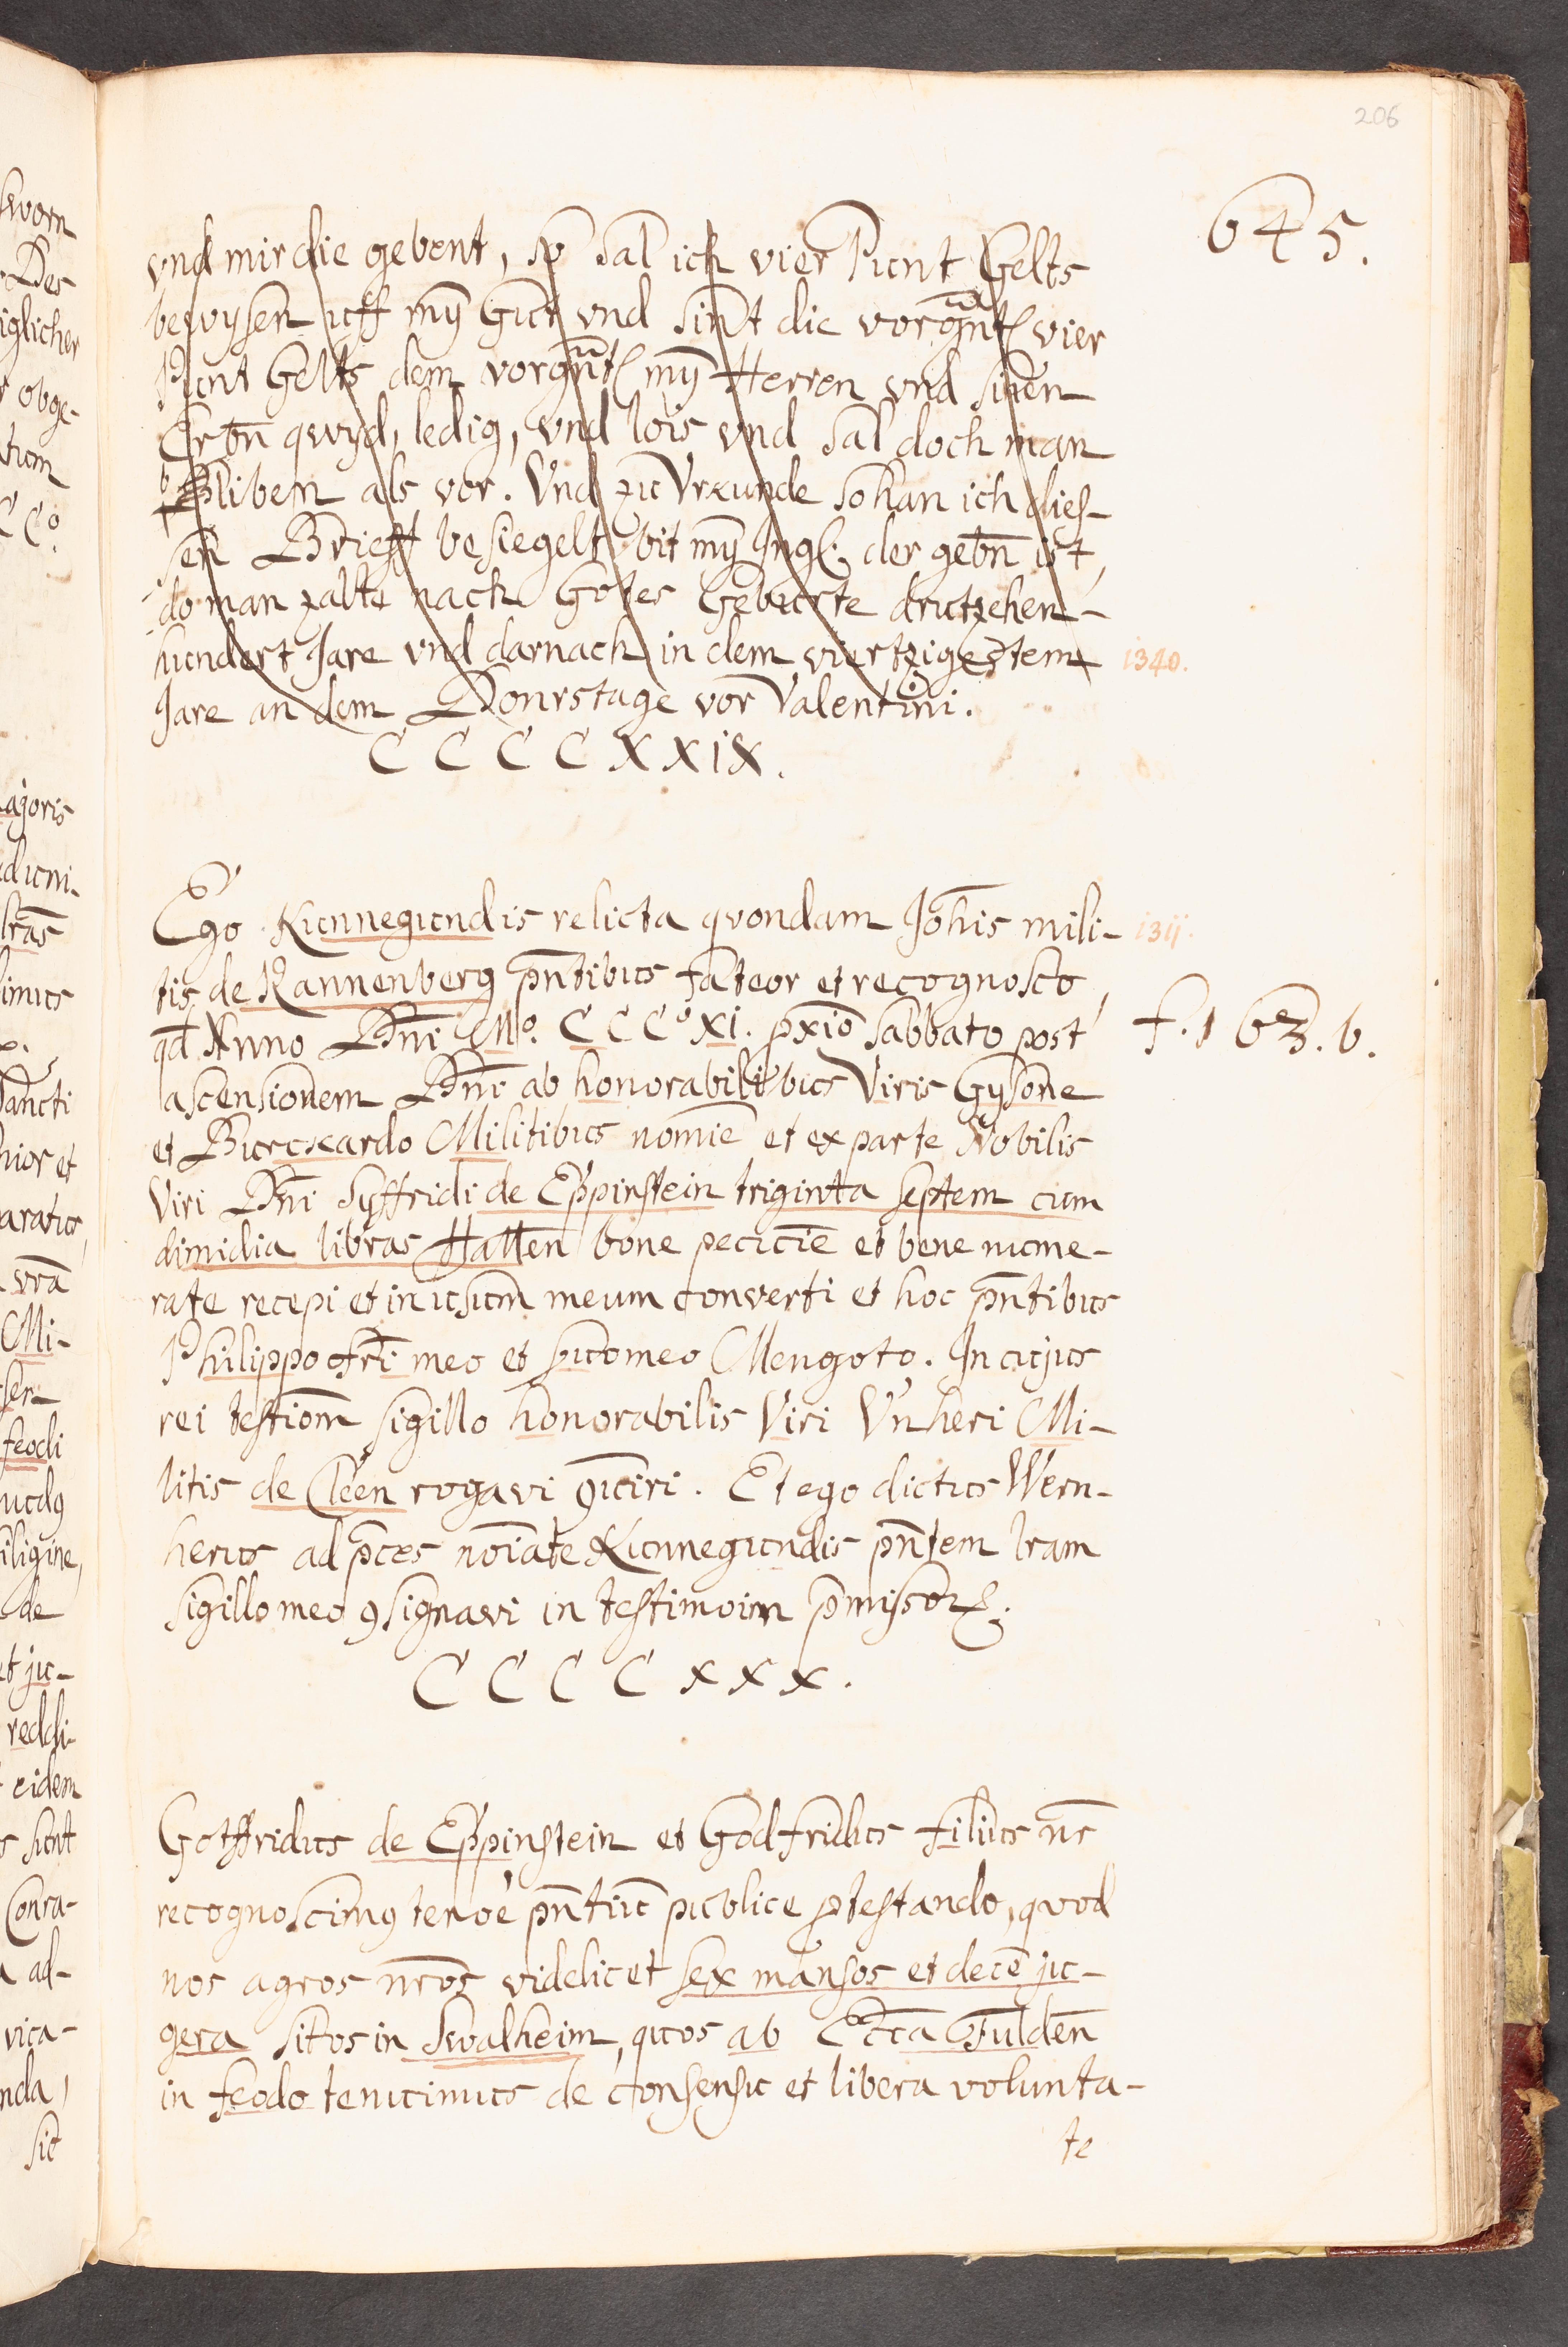 206
645.
vnd mir die gebent, so sal ich vier Punt Gelts
bewysen uff mȳ Gut vnd sint die vorgn̄t vier
Punt Gelts dem vorgn̄t mȳ Herren vnd sinen
Erbn̄ qwyd, ledig, vnd lois vnd sal doch man
bliben als vor. Vnd zu Vrkunde so han ich dies-
sen Brieff besiegelt bit mȳ Ings. der gebn̄ ist,
do man zalte nach Gotes Geburte drutzehen-
hundert Jare vnd darnach in dem viertzigestem
1340.
Jare an dem Donrstage vor Valentini.
CCCCXXIX.
Ego Kunnegundis relicta qvondam Joh̄is mili-
1311.
tis de Rannenberg pn̄tibus fateor et recognosco,
qd Anno Dn̄i Mº. CCCº XI. pxīo Sabbato post
f. 163. b.
ascensionem Dn̄i ab honorabilibus Viris Gysone
et Burckardo Militibus nomīe et ex parte Nobilis
Viri Dn̄i Syffridi de Eppinstein triginta septem cum
dimidia libras Hallen bone pecunīe et bene nume-
rate recepi et in usum meum converti et hoc pn̄tibus
Philippo fr̄i meo et suo meo Mengoto. In cujus
rei testiom̄ sigillo honorabilis Viri Vnheri Mi-
litis de Cleen rogavi 9uīri. Et ego dictus Wern-
herus ad p̄ces noīate Kunnegundis pn̄tem lram
sigillo meo 9signavi in testimoim p̄missoꝝ.
CCCCXXX.
Gotffridus de Eppinstein et Godfridus filius nr̄
recognoscim9 tenoē pn̄tiū publice ptestando, qvod
nos agros nr̄os videlicet sex mansos et decē ju-
gera sitos in Swalheim, quos ab Ecc̄a Fulden̄
in feodo tenuimus de consensu et libera volunta-
te